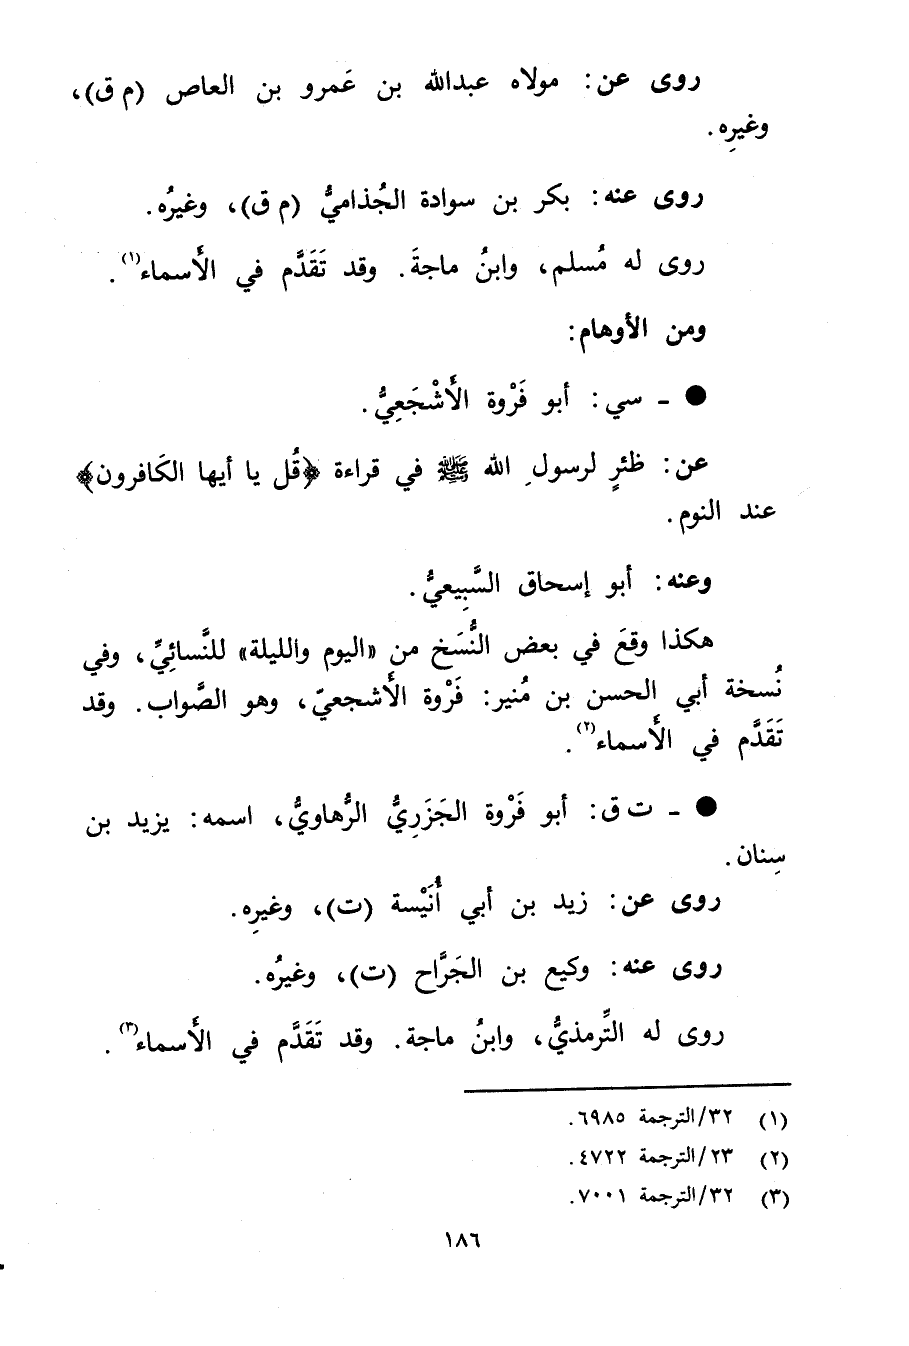 روى عن: مولاه عبدالله بن عَمرو بن العاص (م ق)،
وغيرِه.
روى عنه: بكر بن سوادة الجُذاميُّ (م ق)، وغيرُه.
روى له مُسلم، وابنُ ماجةَ. وقد تَقَدَّم في الأَسماء(١).
ومن الأوهام:
● ـ سي: أبو فَرْوة الأَشْجَعِيُّ.
عن: ظئرٍ لرسولِ الله ﷺ في قراءة ﴿قُل يا أيها الكَافرون﴾
عند النوم.
وعنه: أبو إسحاق السَّبِيعيُّ.
هكذا وقعَ في بعض النُّسَخ من «اليوم والليلة» للنَّسائِيِّ، وفي
نُسخة أبي الحسن بن مُنير: فَرْوة الأَشجعيّ، وهو الصَّواب. وقد
تَقَدَّم في الأَسماء(٢).
● ـ ت ق: أبو فَرْوة الجَزَرِيُّ الرُّهاويُّ، اسمه: يزيد بن
سِنان.
روى عن: زيد بن أبي أُنَيْسة (ت)، وغيرِه.
روى عنه: وكيع بن الجَرَّاح (ت)، وغيرُه.
روى له التِّرمذيُّ، وابنُ ماجة. وقد تَقَدَّم في الأَسماء(٣).
(١) ٣٢/الترجمة ٦٩٨٥.
(٢) ٢٣/الترجمة ٤٧٢٢.
(٣) ٣٢/الترجمة ٧٠٠١.
١٨٦